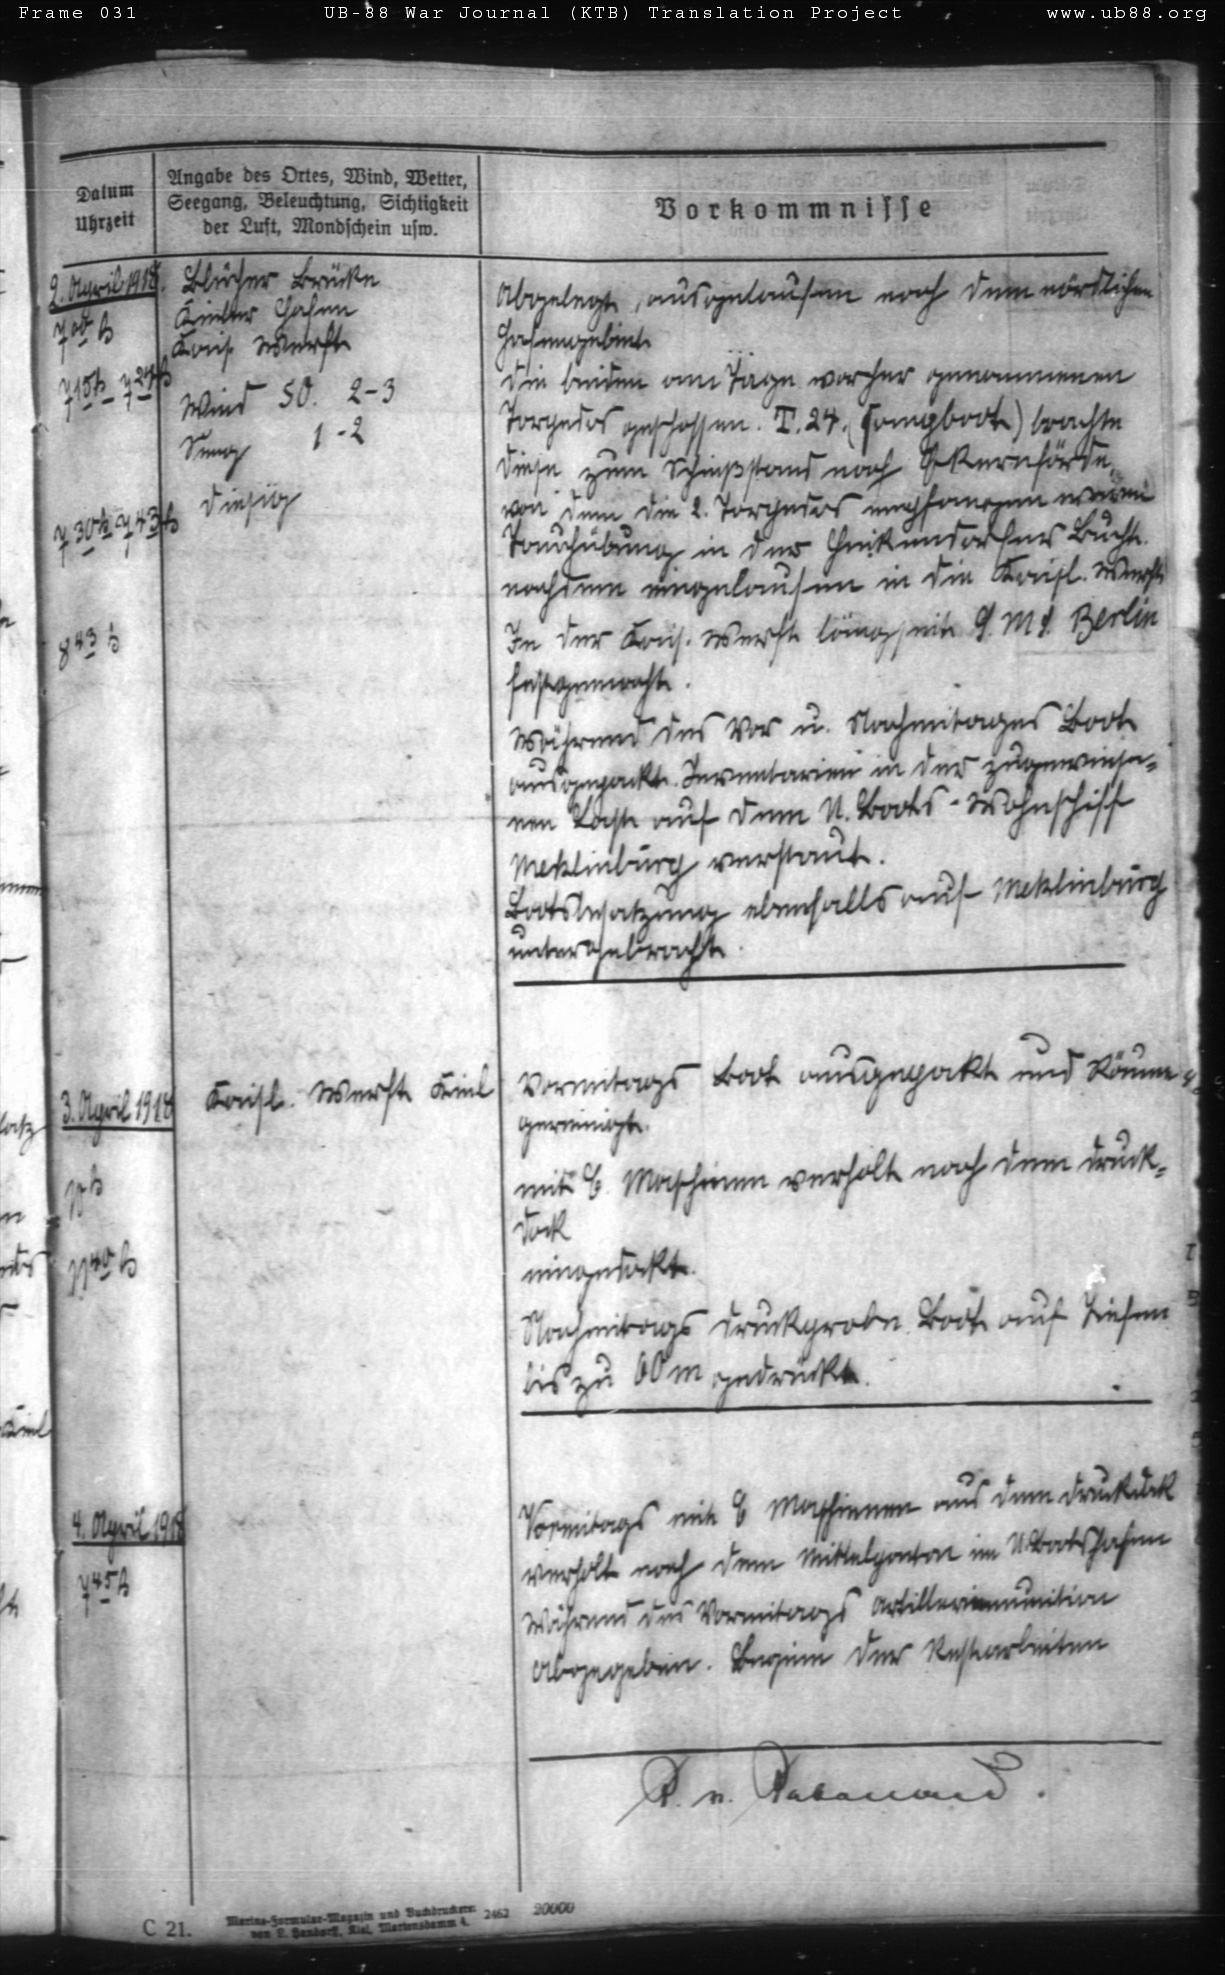 Frame 031
UB-88 War Journal (KTB) Translation Project
www.ub88.org
Datum
Uhrzeit
Angabe des Ortes, Wind, Wetter,
Seegang, Beleuchtung, Sichtigkeit
der Luft, Mondschein usw.
Vorkommnisse
2. April 1918.
Blücher Brücke
Kieler Hafen
Kais. Werft
7 00 h
Abgelegt, ausgelaufen nach dem nördlichen
Hafengebiet
7 15 h - 7 27 h
Wind SO. 2-3
Seeg 1-2
diesig
die beiden am Tage vorher genommenen
Torpedos geschossen. T. 24. (Fangboot) brachte
diese zum Schießstand nach Eckernförde,
von dem die 2. Torpedos empfangen waren
7 30 h - 7 43 h
Tauchübung in der Heikendorfer Bucht.
nachdem eingelaufen in die Kaisl. Werft
8 43 h
In der Kais. Werft längseit S.M.S. Berlin
festgemacht.
Während des Vor u. Nachmitages Boot
ausgepackt. Inventarien in der zugewiese=
nen Last auf dem U. Boots-Wohnschiff
Meklinburg verstaut.
Bootsbesatzung ebenfalls auf Meklinburg
untergebracht.
3. April 1918
Kaisl. Werft Kiel
Vormitags Boot ausgepakt und Räume
gereinigt.
10 h
mit E. Maschinen verholt nach dem Druck=
dock
11 40 h
eingedockt.
Nachmitags Druckprobe. Boot auf Tiefen
bis zu 60 m gedrückt.
4. April 1918
7 45 h
Vormitags mit E Maschinen aus dem Druckdok
verholt nach dem Mittelponton im U.Bootshafen
Während des Vormitags Artilleriemunition
abgegeben. Beginn der Restarbeiten
R. v. Rabenau.
C 21.
Marine-Formular-Magazin und Buchdruckerei
von L. Handorff, Kiel, Martensdamm 4.
2462
20000